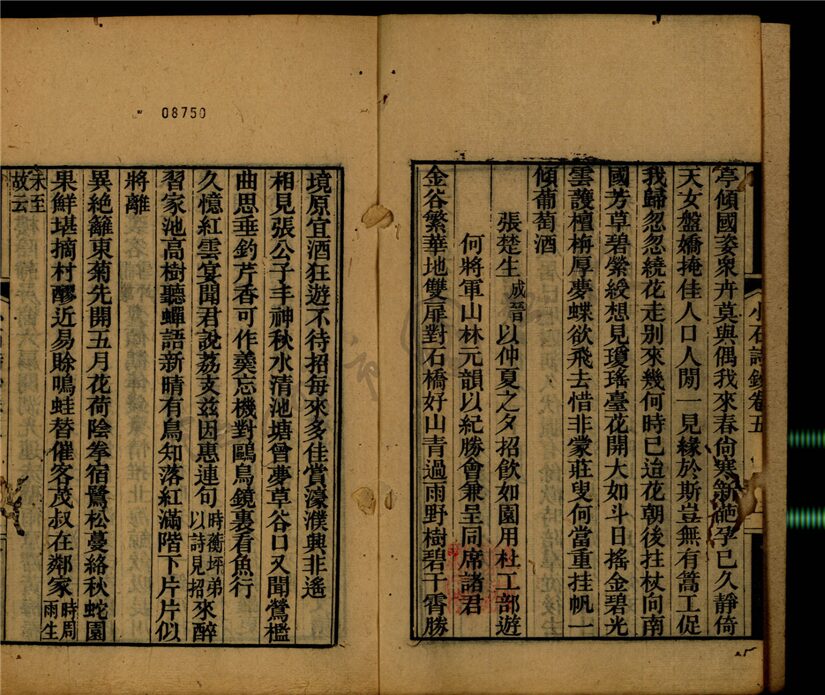 小石詩鈔卷五
亭傾國姿衆卉莫與偶我來春尙寒新葩孕已久靜倚
天女盤嬌掩佳人口人閒一見緣於斯豈無有蒿工促
我歸忽忽繞花走別來幾何時已迨花朝後拄杖向南
國芳草碧縈綬想見瓊瑤臺花開大如斗日搖金碧光
雲護檀栴厚夢蝶欲飛去惜非蒙莊叟何當重挂帆一
傾葡萄酒
張楚生成晉以仲夏之夕招飮如園用杜工部遊
何將軍山林元韻以紀勝會兼呈同席諸君
金谷繁華地雙扉對石橋好山靑過雨野樹碧干霄勝
08750
境原宜酒狂遊不待招每來多佳賞濠濮興非遙
相見張公子丰神秋水清池塘曾夢草谷口又聞鶯檻
曲思垂釣芹香可作羹忘機對鷗鳥鏡裏看魚行
久憶紅雲宴聞君說荔支茲因惠連句時蘅坪弟以詩見招來醉
習家池高樹聽蟬語新晴有鳥知落紅滿階下片片似
將離
異絕籬東菊先開五月花荷陰拳宿鷺松蔓絡秋蛇園
果鮮堪摘村醪近易賒鳴蛙替催客茂叔在鄰家時周雨生
未至故云